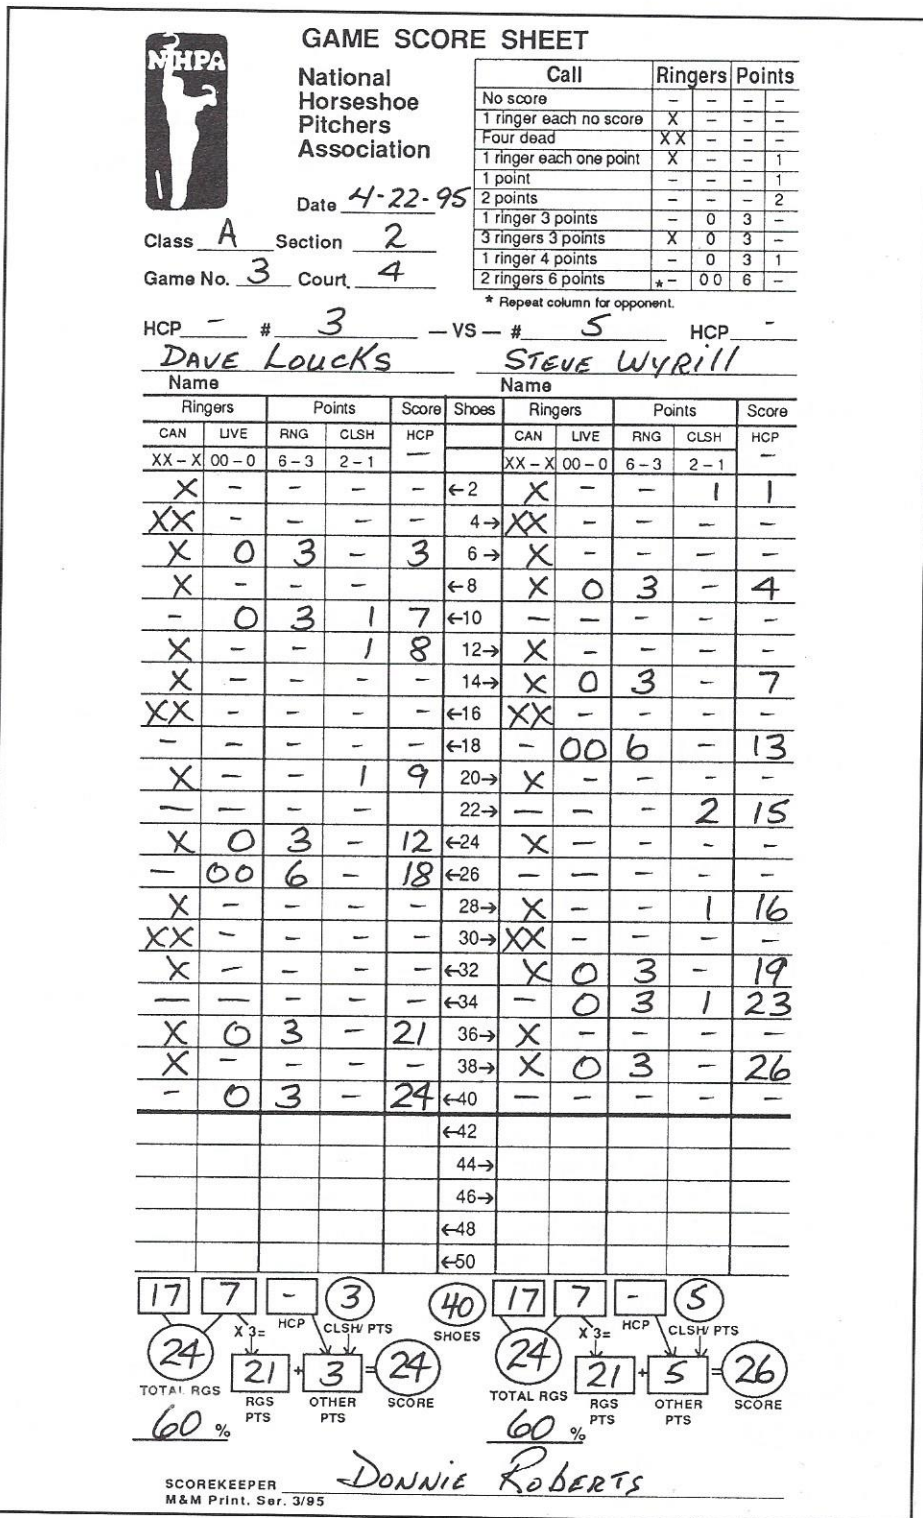 NHPA
GAME SCORE SHEET
National
Horseshoe
Pitchers
Association
Call Ringers Points
No score - - - -
1 ringer each no score X - - -
Four dead XX - - -
1 ringer each one point X - - 1
1 point - - - 1
2 points - - - 2
1 ringer 3 points - 0 3 -
3 ringers 3 points X 0 3 -
1 ringer 4 points - 0 3 1
2 ringers 6 points *- 00 6 -
* Repeat column for opponent.
Date 4-22-95
Class A Section 2
Game No. 3 Court 4
HCP - # 3 - VS - # 5 HCP -
DAVE LOUCKS STEVE WYRILL
Name Name
Ringers Points Score Shoes Ringers Points Score
CAN LIVE RNG CLSH HCP CAN LIVE RNG CLSH HCP
XX-X 00-0 6-3 2-1 - XX-X 00-0 6-3 2-1 -
X - - - - ←2 X - - 1 1
XX - - - - 4→ XX - - - -
X 0 3 - 3 6→ X - - - -
X - - - ←8 X 0 3 - 4
- 0 3 1 7 ←10 - - - - -
X - - 1 8 12→ X - - - -
X - - - - 14→ X 0 3 - 7
XX - - - - ←16 XX - - - -
- - - - - ←18 - 00 6 - 13
X - - 1 9 20→ X - - - -
- - - - 22→ - - - 2 15
X 0 3 - 12 ←24 X - - - -
- 00 6 - 18 ←26 - - - - -
X - - - - 28→ X - - 1 16
XX - - - - 30→ XX - - - -
X - - - - ←32 X 0 3 - 19
- - - - - ←34 - 0 3 1 23
X 0 3 - 21 36→ X - - - -
X - - - - 38→ X 0 3 - 26
- 0 3 - 24 ←40 - - - - -
←42
44→
46→
←48
←50
17 7 - 3 40 17 7 - 5
X 3= HCP CLSH/ PTS SHOES X 3= HCP CLSH/ PTS
24 21 + 3 = 24 24 21 + 5 = 26
TOTAL RGS RGS PTS OTHER PTS SCORE TOTAL RGS RGS PTS OTHER PTS SCORE
60 % 60 %
SCOREKEEPER DONNIE ROBERTS
M&M Print. Ser. 3/95